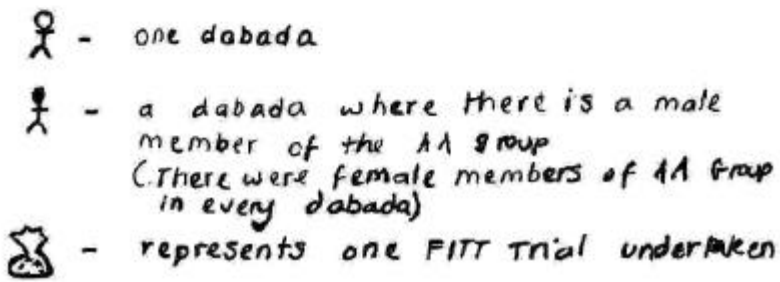 - one dabada
- a dabada where there is a male
member of the AA group
(There were female members of AA Group
in every dabada)
- represents one FITT Trial undertaken